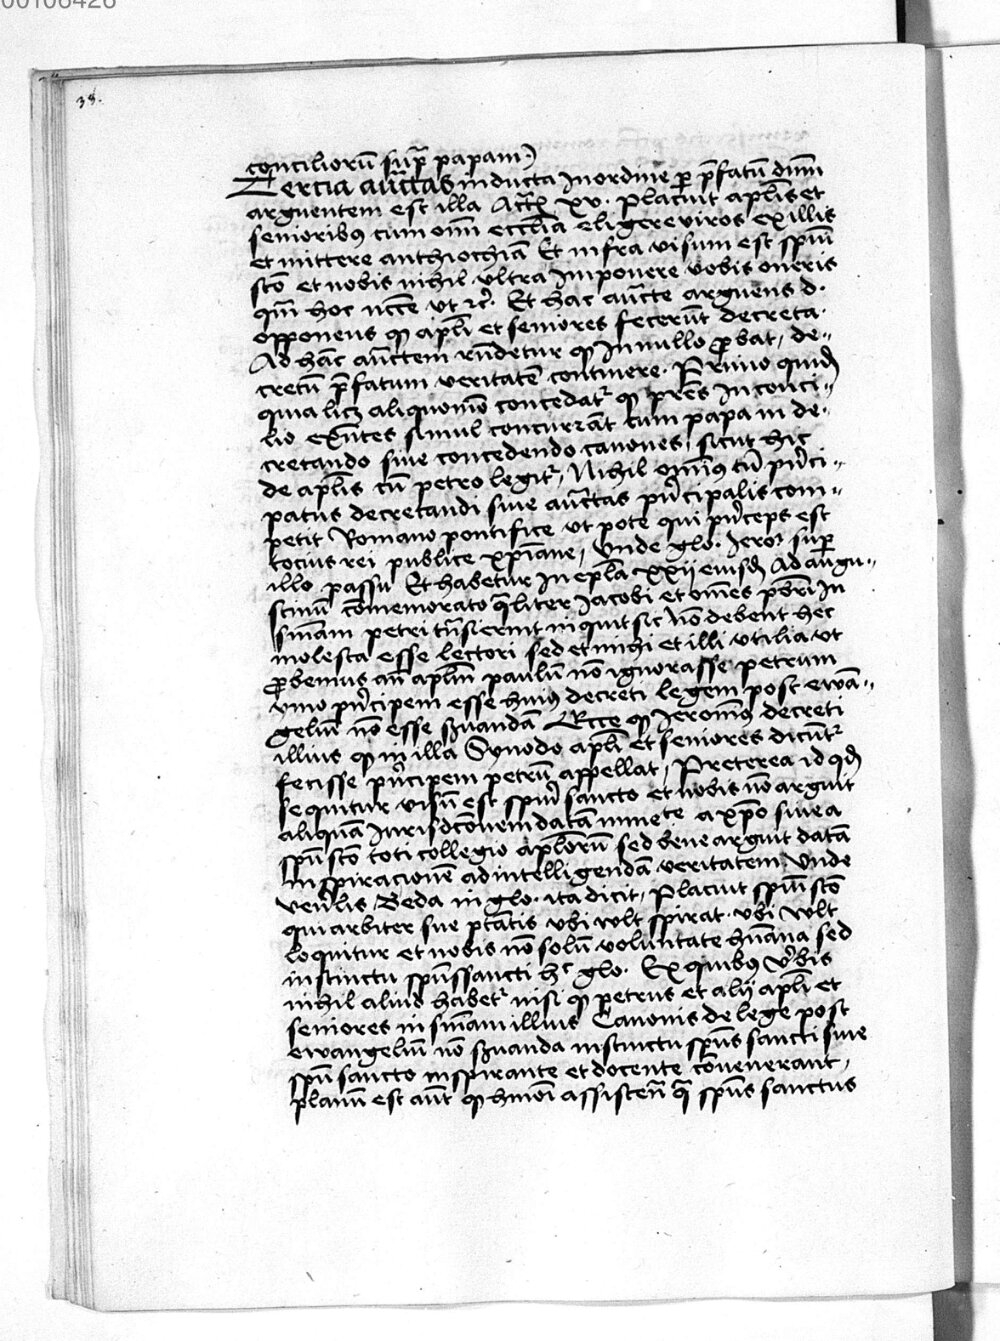 00106426
38.
conciliorū sup̄ papam)
Tercia auc̄tas inducta In ordine p̱ p̄fatū dn̄m
arguentem est illa Act̄ xv. placuit apl̄is et
senioribꝯ cum om̄i eccl̄ia eligere viros ex illis
et mittere anthiochiā Et infra visum est spūi
sc̄o et nobis nihil vltra Imponere vobis oneris
qm̄ hoc nc̄ce vt ⁊c̄. Et hac auc̄te arguens d.
opponens qꝫ apl̄i et seniores fecerūt decreta.
Ad hāc auc̄tem rn̄detur qꝫ In nullo ꝓbat, de-
cretū p̄fatum veritatē continere. Primo quidē
quia licꝫ aliquomō concedatᷣ qꝫ pr̄es In conci-
lio exn̄tes simul concurrāt cum papa in de-
cretando siue concedendo canones, sicut hic
de apl̄is cū petro legitᷣ, Nihil omīꝯ tn̄ pn̄ci-
patus decretandi siue auc̄tas pn̄cipalis com-
petit Romano pontifice vt pote qui pn̄ceps est
tocius rei publice xp̄iane, Vnde glo. Jeroꝫ sup̄
illo passu Et habetur In epl̄a xxij eiusdꝫ Ad augu-
stinū cōmemorato qͣliter Jacobi et om̄es pb̄ri In
sniam petri tn̄sierint inquit sic Nō debent hec
molesta esse lectori sed et mihi et illi vtilia vt
ꝓbemus an̄ apl̄m paulū nō ignorasse petrum
ymo pn̄cipem esse huiꝯ decreti legem post ewā-
geliū nō esse ẜuandā Ecce qꝫ Jeronimꝯ decreti
illius qꝫ in illa Synodo apl̄i et seniores dicūtᷣ
fecisse pn̄cipem petrū appellat, Preterea id qd̄
sequitur visū est spūi sancto et nobis nō arguit
aliquā Iurisdc̄onem datā inmete a xp̄o siue a
spū sc̄o toti collegio apl̄orū sed bene arguit datā
inspiracionē ad intelligendā veritatem Vnde
ven̄lis Beda in glo. ita dicit, Placuit spūi sc̄o
qui arbiter sue pt̄atis vbi wlt spirat. vbi wlt
loquitur et nobis nō solū voluntate hūana sed
instinctu spūssancti hᷤ glo. Ex quibus v̄bis
nihil aliud habetᷣ nisi qꝫ petrus et alij apl̄i et
seniores in sniam illius Canonis de lege post
ewangeliū nō ẜuanda instinctu spūs sancti siue
spū sancto inspirante et docente cōuenerant,
planū est aūt qꝫ hmōi assisten̄ qͣ spūs sanctus